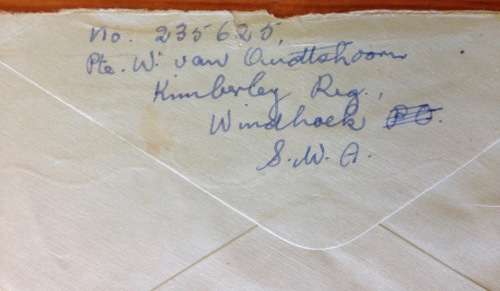 No. 235625,
Pte. W. van Oudtshoorn
Kimberley Reg.,
Windhoek
S.W.A.